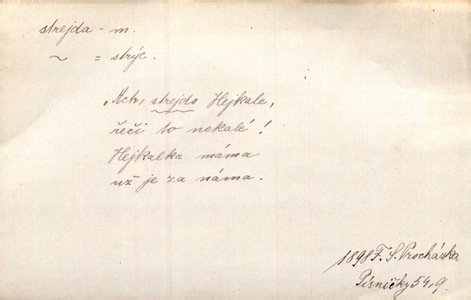 strejda - m.
~ = strýc.
„Actr, strejdo Hejkale,
řeči to nekalé!
Hejkalka máma
už je za náma.
1898 F. S. Procházka
Písničky 54,9.